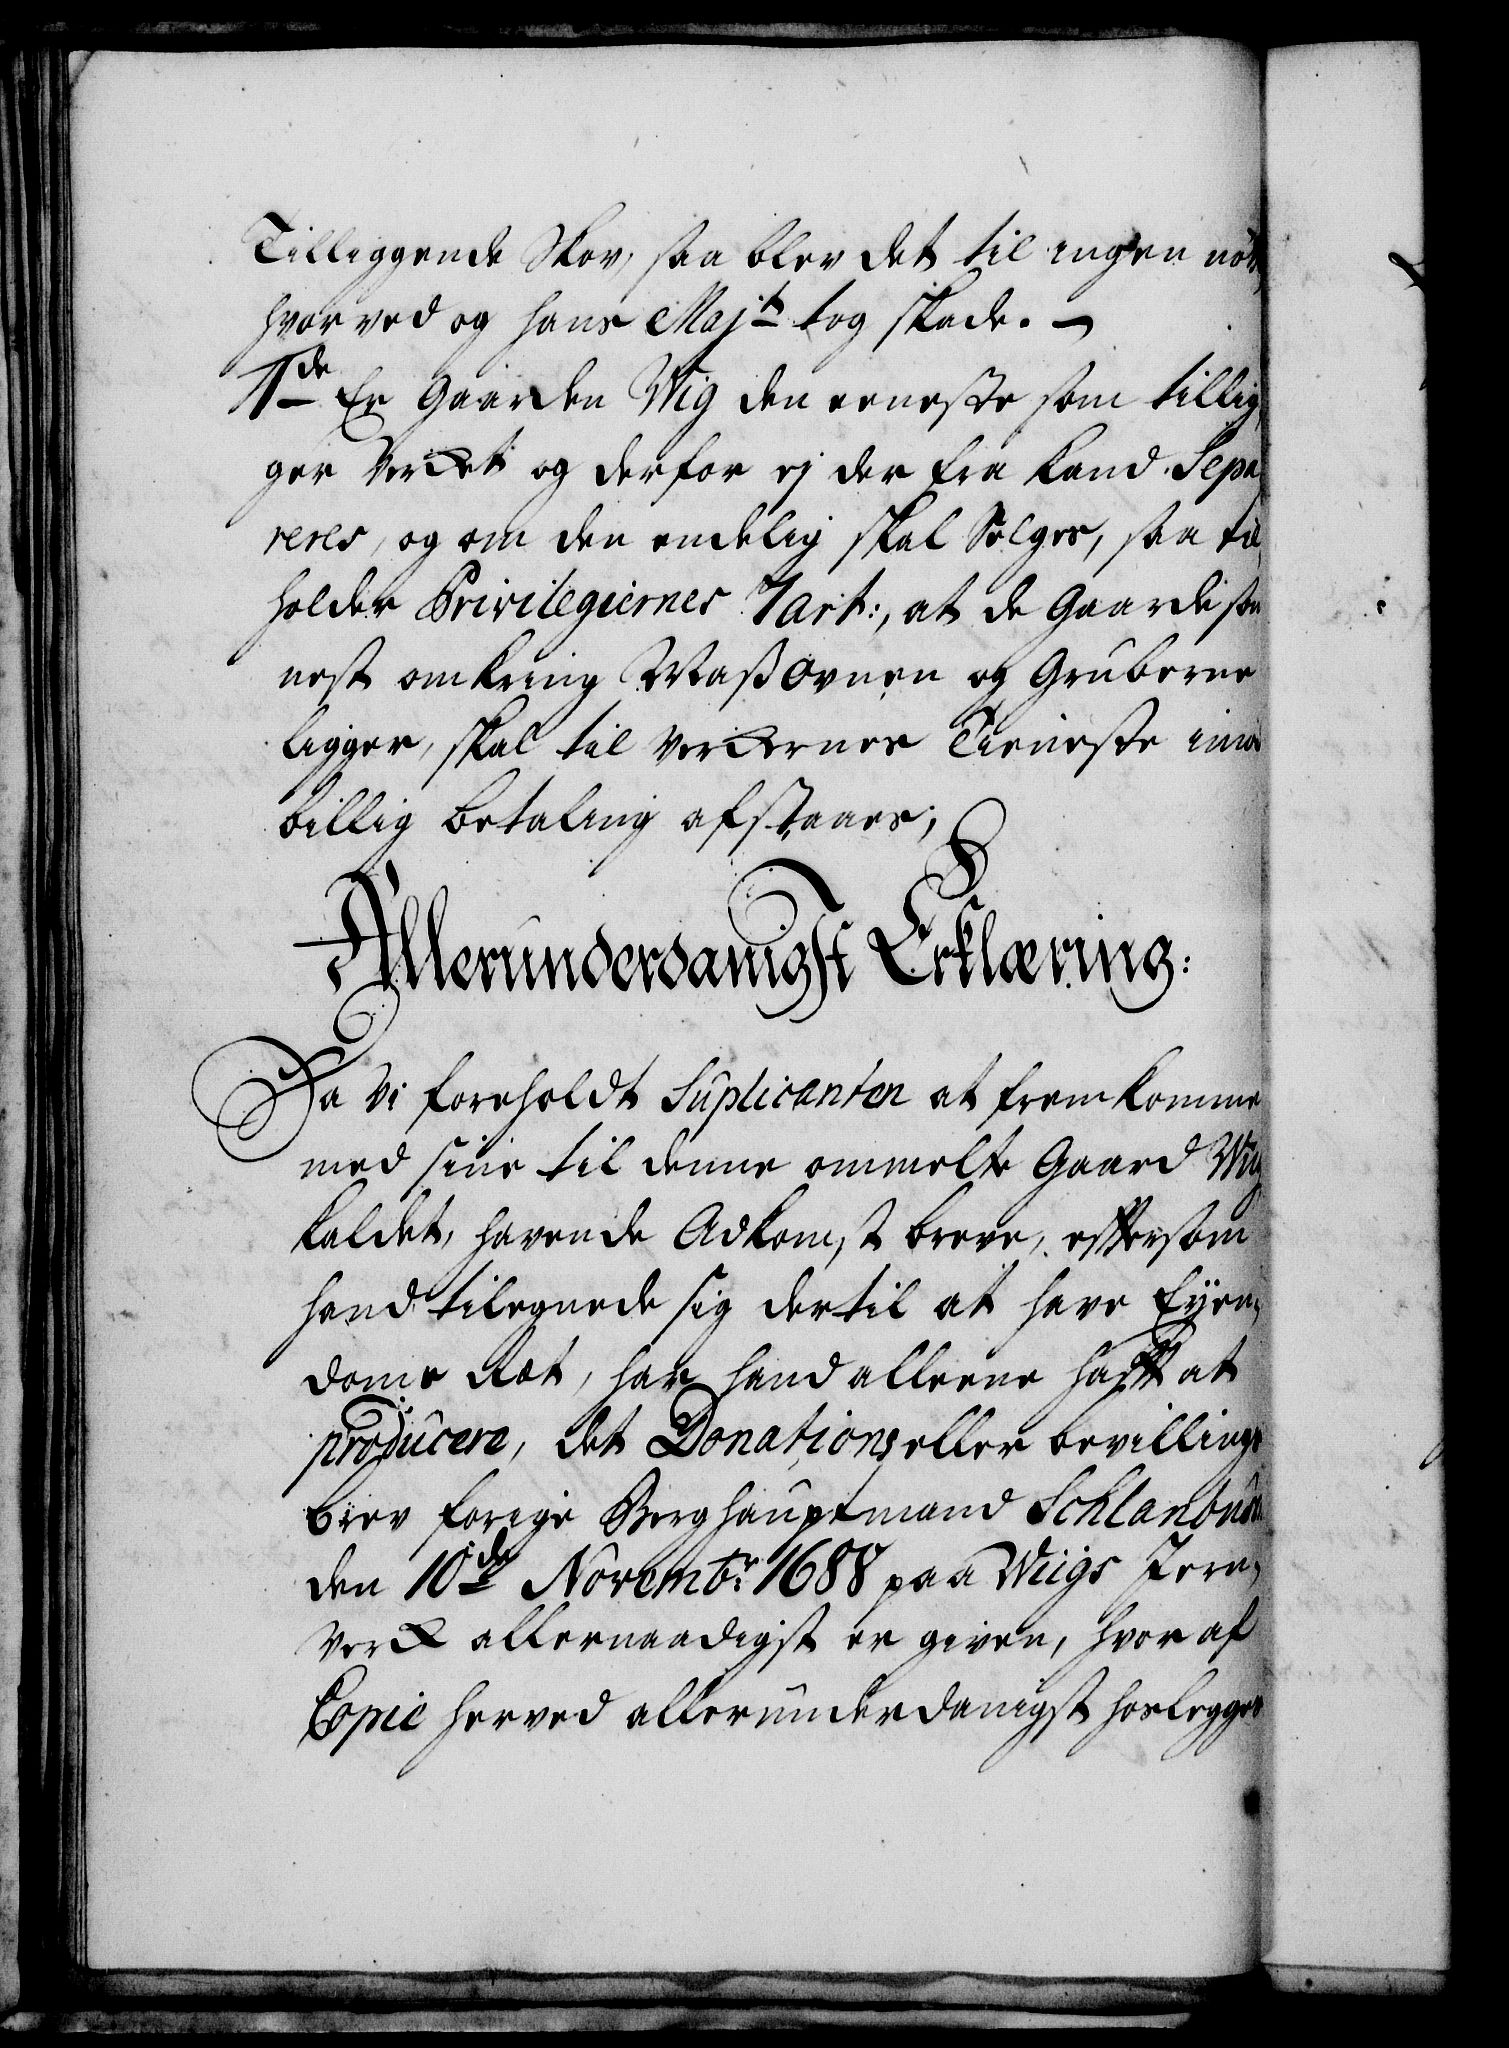 Tilliggende Skov, saa blev det til ingen nøtte
hvorved og hans Majts tog skade. —
de Er Gaarden Wig den eeneste som tillig,
ger Verket og derfor ej der fra kand Sepa
reres, og om den endelig skal Sælges, saa til
holder Privilegiernes 7 art:, at de Gaarde som
nest omkring Massovnen og Gruberne
ligger, skal til Verkernes Tieneste imod
billig betaling afstaaes;
Allerunderdanigst Erklæring:
Da Vi foreholdt Suplicanten at fremkomme
med sine til denne ommelte Gaard Wiig
kaldet, havende Adkomst breve, eftersom
hand tilegnede sig dertil at have Eyen,
doms Ræt, har hand alleene hafft at
producere, det Donations eller bevillings
brev forige Berghauptmand Schlanbusch
den 10de Novembr: 1688 paa Wiigs Jern,
Verk allernaadigst er given, hvor af
Copie herved allerunderdanigst hoslegges